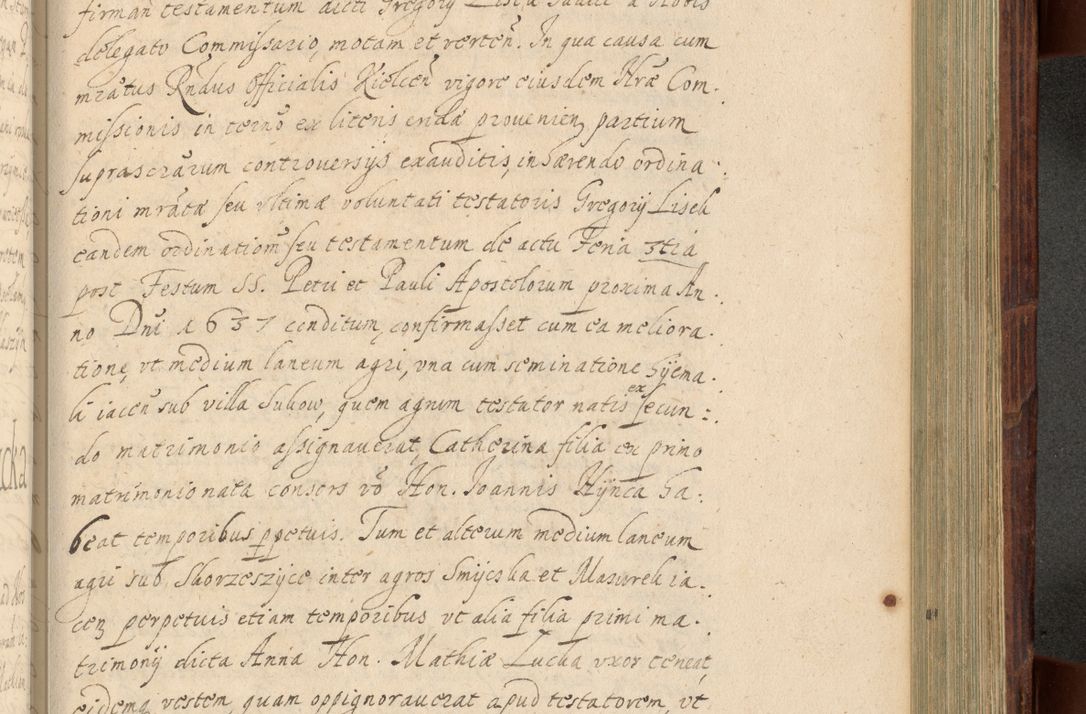 firman testamentum dicti Gregorij Lisek
delegato Commissario, motam et verteñ. In qua causa cum
mratus Rndus Officialis Kielceñ vigore eiusdem Nræ Com.
missionis in termo ex literis eiusdẽ provenieñ partium
suprascrarum controversijs exauditis, inhærendo ordina:
tioni mratæ seu vltimæ voluntati testatoris Gregorij Lisek
eandem ordinationem seu testamentum de actu Feria 3tia
post Festum SS. Petri et Pauli Apostolorum proxima An:
no Dni 1637 conditum, confirmasset cum ea meliora:
tione, vt medium laneum agri, vna cum seminatione hyema:
li iaceñ sub villa Sukow, quem agrum testator natis ex secun:
do matrimonio assignaverat, Catherina filia ex primo
matrimonio nata consors vo Hon. Joannis Hynca ha:
beat temporibus ppetuis. Tum et alterum medium laneum
agri sub Skorzeszyce inter agros Smyczka et Mazurek ia:
ceñ perpetuis etiam temporibus vt alia filia primi ma:
trimonij dicta Anna Hon. Mathiæ Lucka vxor teneat,
vestem, quam oppignoraverat apud testatorem, vt